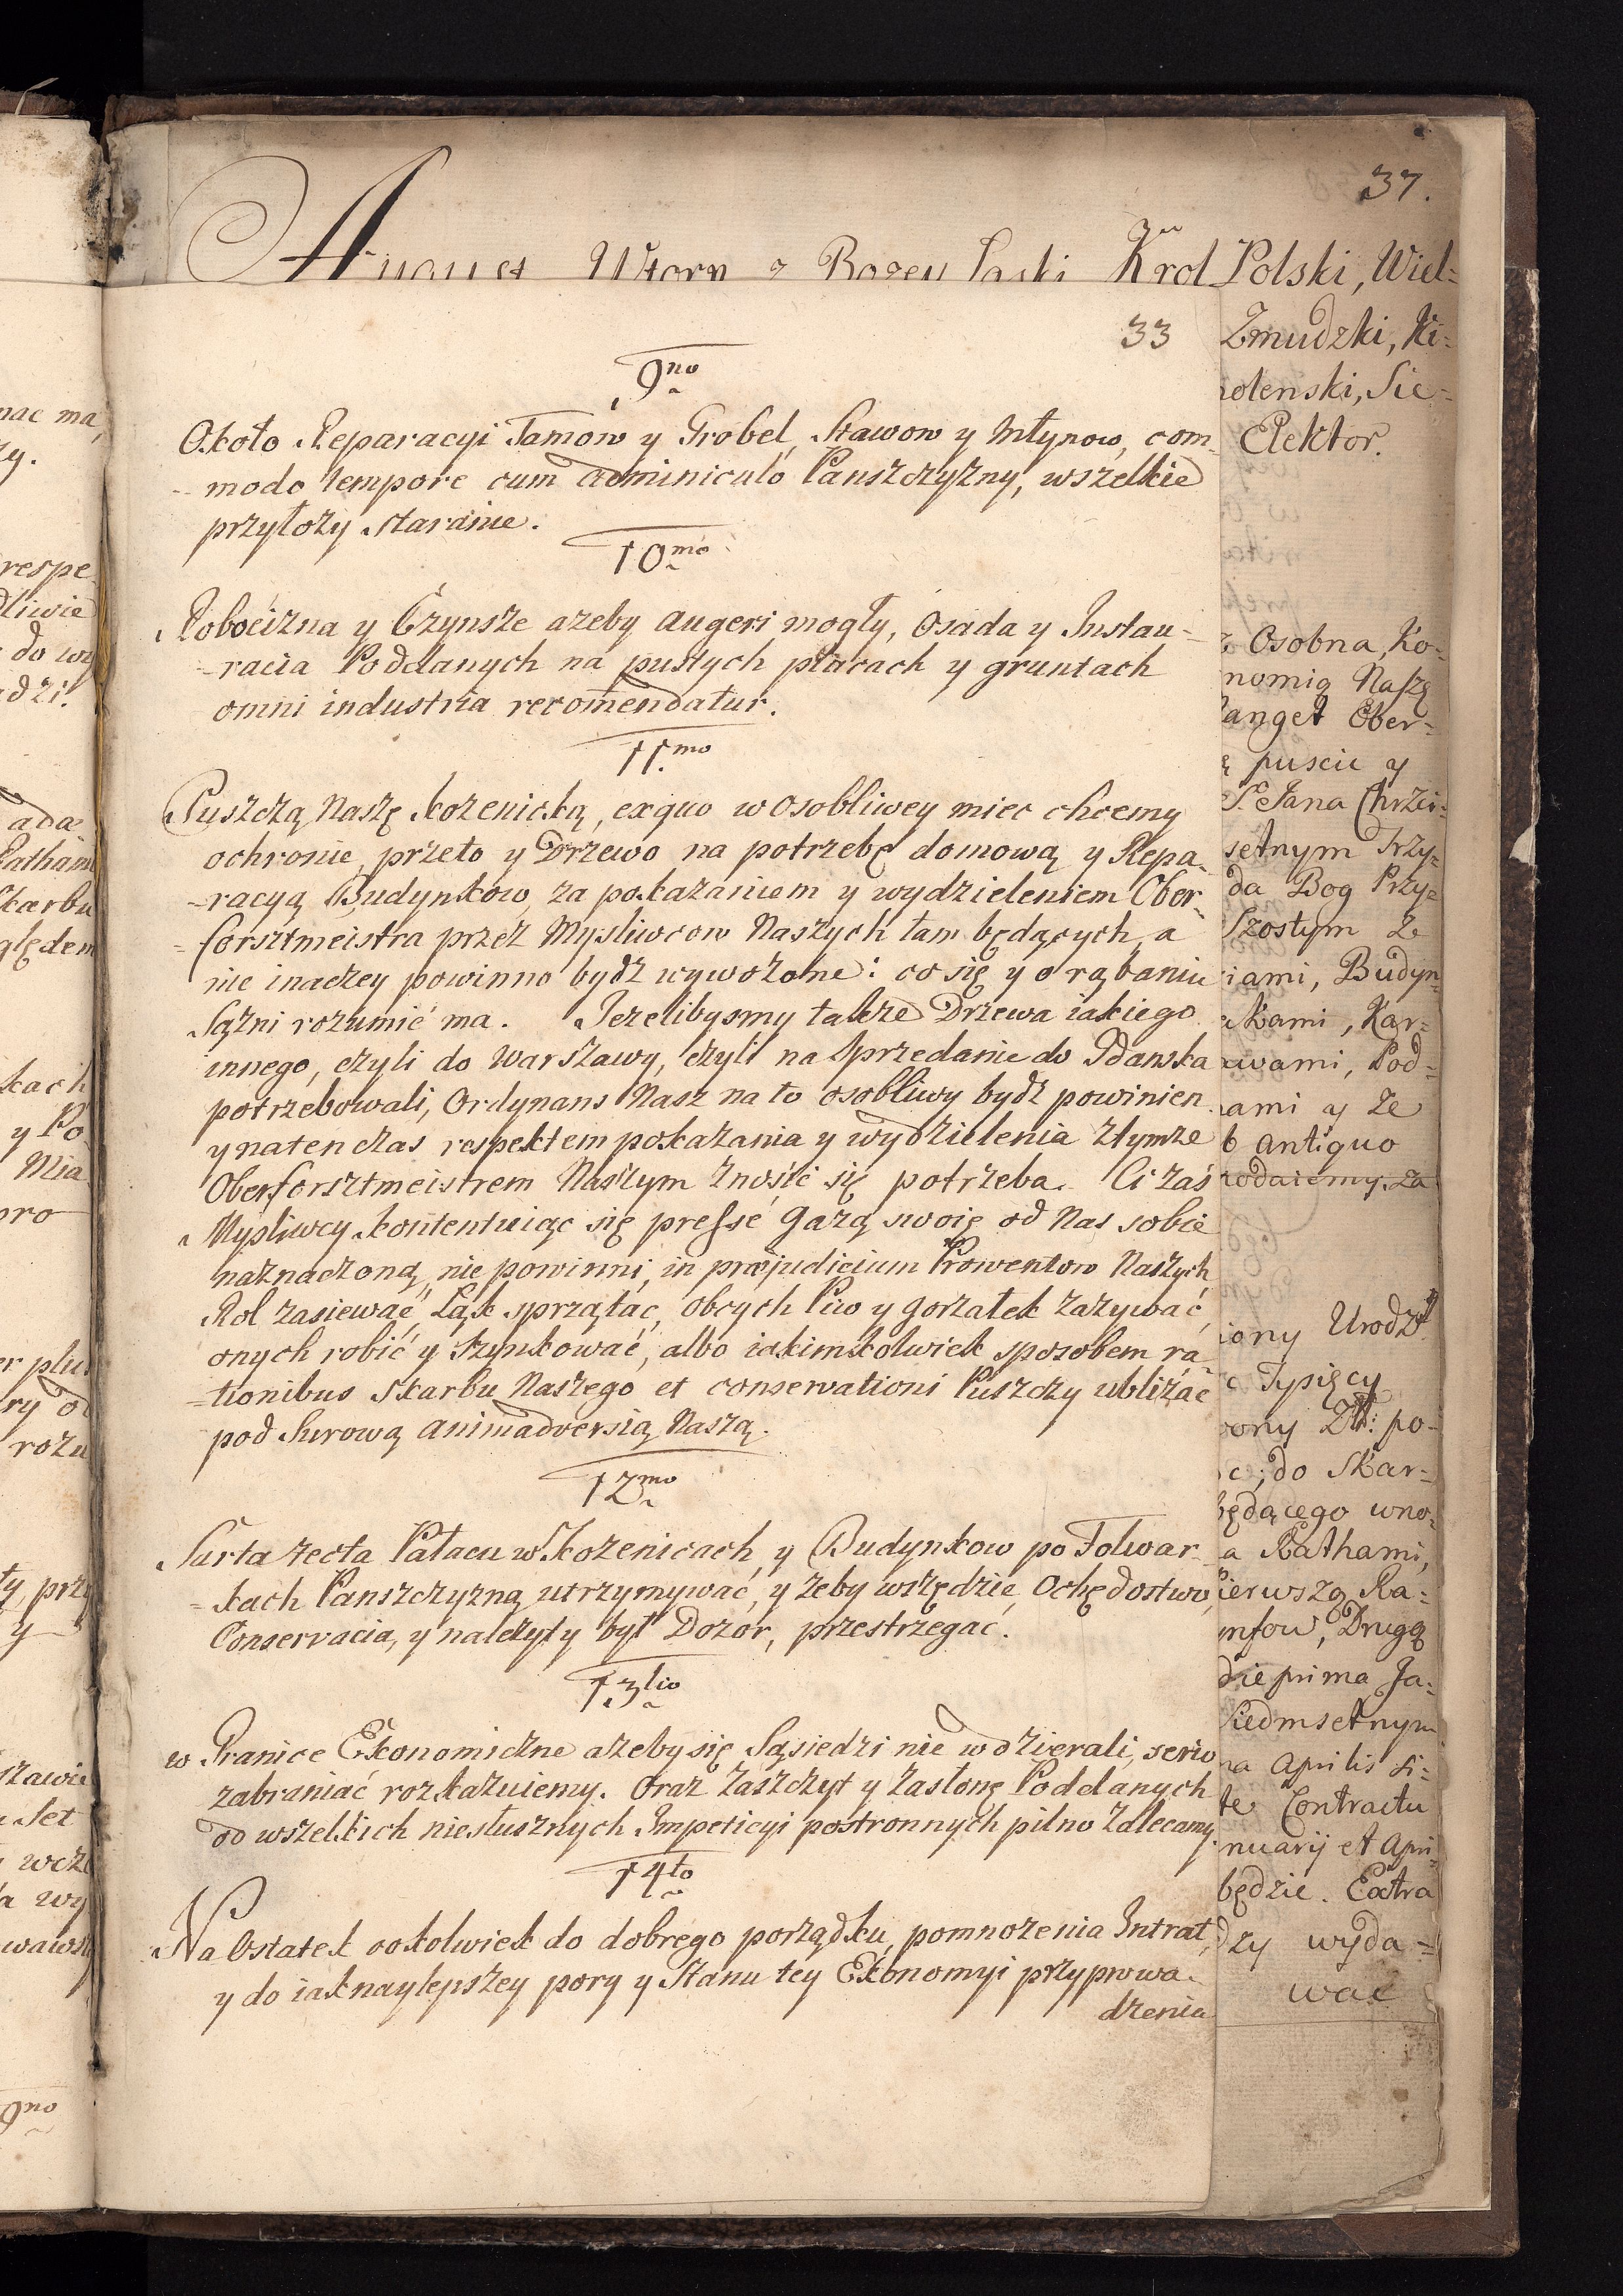 37.
August Wtory z Bozey Łaski Krol Polski, Wiel=
33
9no
Około Reparacyi Tamow y Grobel, Stawow y Młynow, com=
modo tempore cum adminiculo Panszczyzny, wszelkie
przyłozy staranie.
10mo
Robocizna y Czynsze azeby augeri mogły, Osada y Instau=
=racia Poddanych na pustych płacach y gruntach
omni industria recom̄endatur.
11.mo
Puszczą Naszę Kozenicką, exquo w osobliwey miec chcemy
ochronie, przeto y Drzewo na potrzebę domową y Repa=
=racyą Budynkow, za pokazaniem y wydzieleniem Ober=
=forsztmeistra przez Mysliwcow Naszych tam będących, a
nie inaczey powinno bydz wywozone: co się y o rąbaniu
Sążni rozumić ma. Jezelibysmy takze Drzewa iakiego
innego, czyli do Warszawy, czyli na sprzedanie do Gdanska
potrzebowali, Ordynans Nasz na to osobliwy bydz powinien
y naten czas respektem pokazania y wydzielenia ztymze
Oberforsztmeistrem Naszym znosić się potrzeba. Ci zaś
Mysliwcy kontentuiąc się presse Gazą swoię od Nas sobie
naznaczoną, nie powinni, in præjudicium Prowentow Naszych
Rol zasiewać, Łąk sprzątać, obcych Piw y gorzałek zazywać,
onych robić y szynkować, albo iakimkolwiek sposobem ra=
=tionibus Skarbu Naszego et conservationi Puszczy ublizać
pod surową animadversią Naszą.
12mo
Sarta tecta Pałacu w Kozenicach, y Budynkow po Folwar=
=kach Panszczyzną utrzymywać, y zeby wszędzie, Ochędostwo,
Conservacia, y nalezyty był Dozor, przestrzegać.
13tio
w Granice Ekonomiczne azeby się Sąsiedzi nie wdzierali, serio
zabraniać rozkazuiemy. Oraz zaszczyt y zasłonę Poddanych
od wszelkich niesłusznych Impeticyi postronnych pilno zalecamy.
14to
Na Ostatek cokolwiek do dobrego porządku, pomnozenia Intrat,
y do iaknaylepszey pory y Stanu tey Ekonomyi przyprowa=
dzenia
Zmudzki, Ki=
olenski, Sie=
Elektor.
Osobna, Ko=
nomią Naszę
anget Ober=
puscic y
S. Jana Chrzci=
setnym Trzy=
da Bog Przy=
Szostym ze
iami, Budyn=
kami, Kar=
wami, Pod=
ami y ze
b antiquo
odaiemy. za
iony Urodz
c Tysięcy
ony Zł: po=
c; do Skar=
będącego wno=
a Rathami,
ierwszą Ra=
ynfow, Drugą
die prima Ja=
Siedmsetnym
na Aprilis si=
te Contractu
nuarij et Apri=
będzie. Extra
dzy wyda=
wać
nac ma,
zy.
respe
dliwie
do wy
dzi.
ada
Skarbu
ględem
kach
y Po
Mia
pro
er plus
ry od
rozu
ty, przy
y
szawie
Set
wcze
a wy
9no